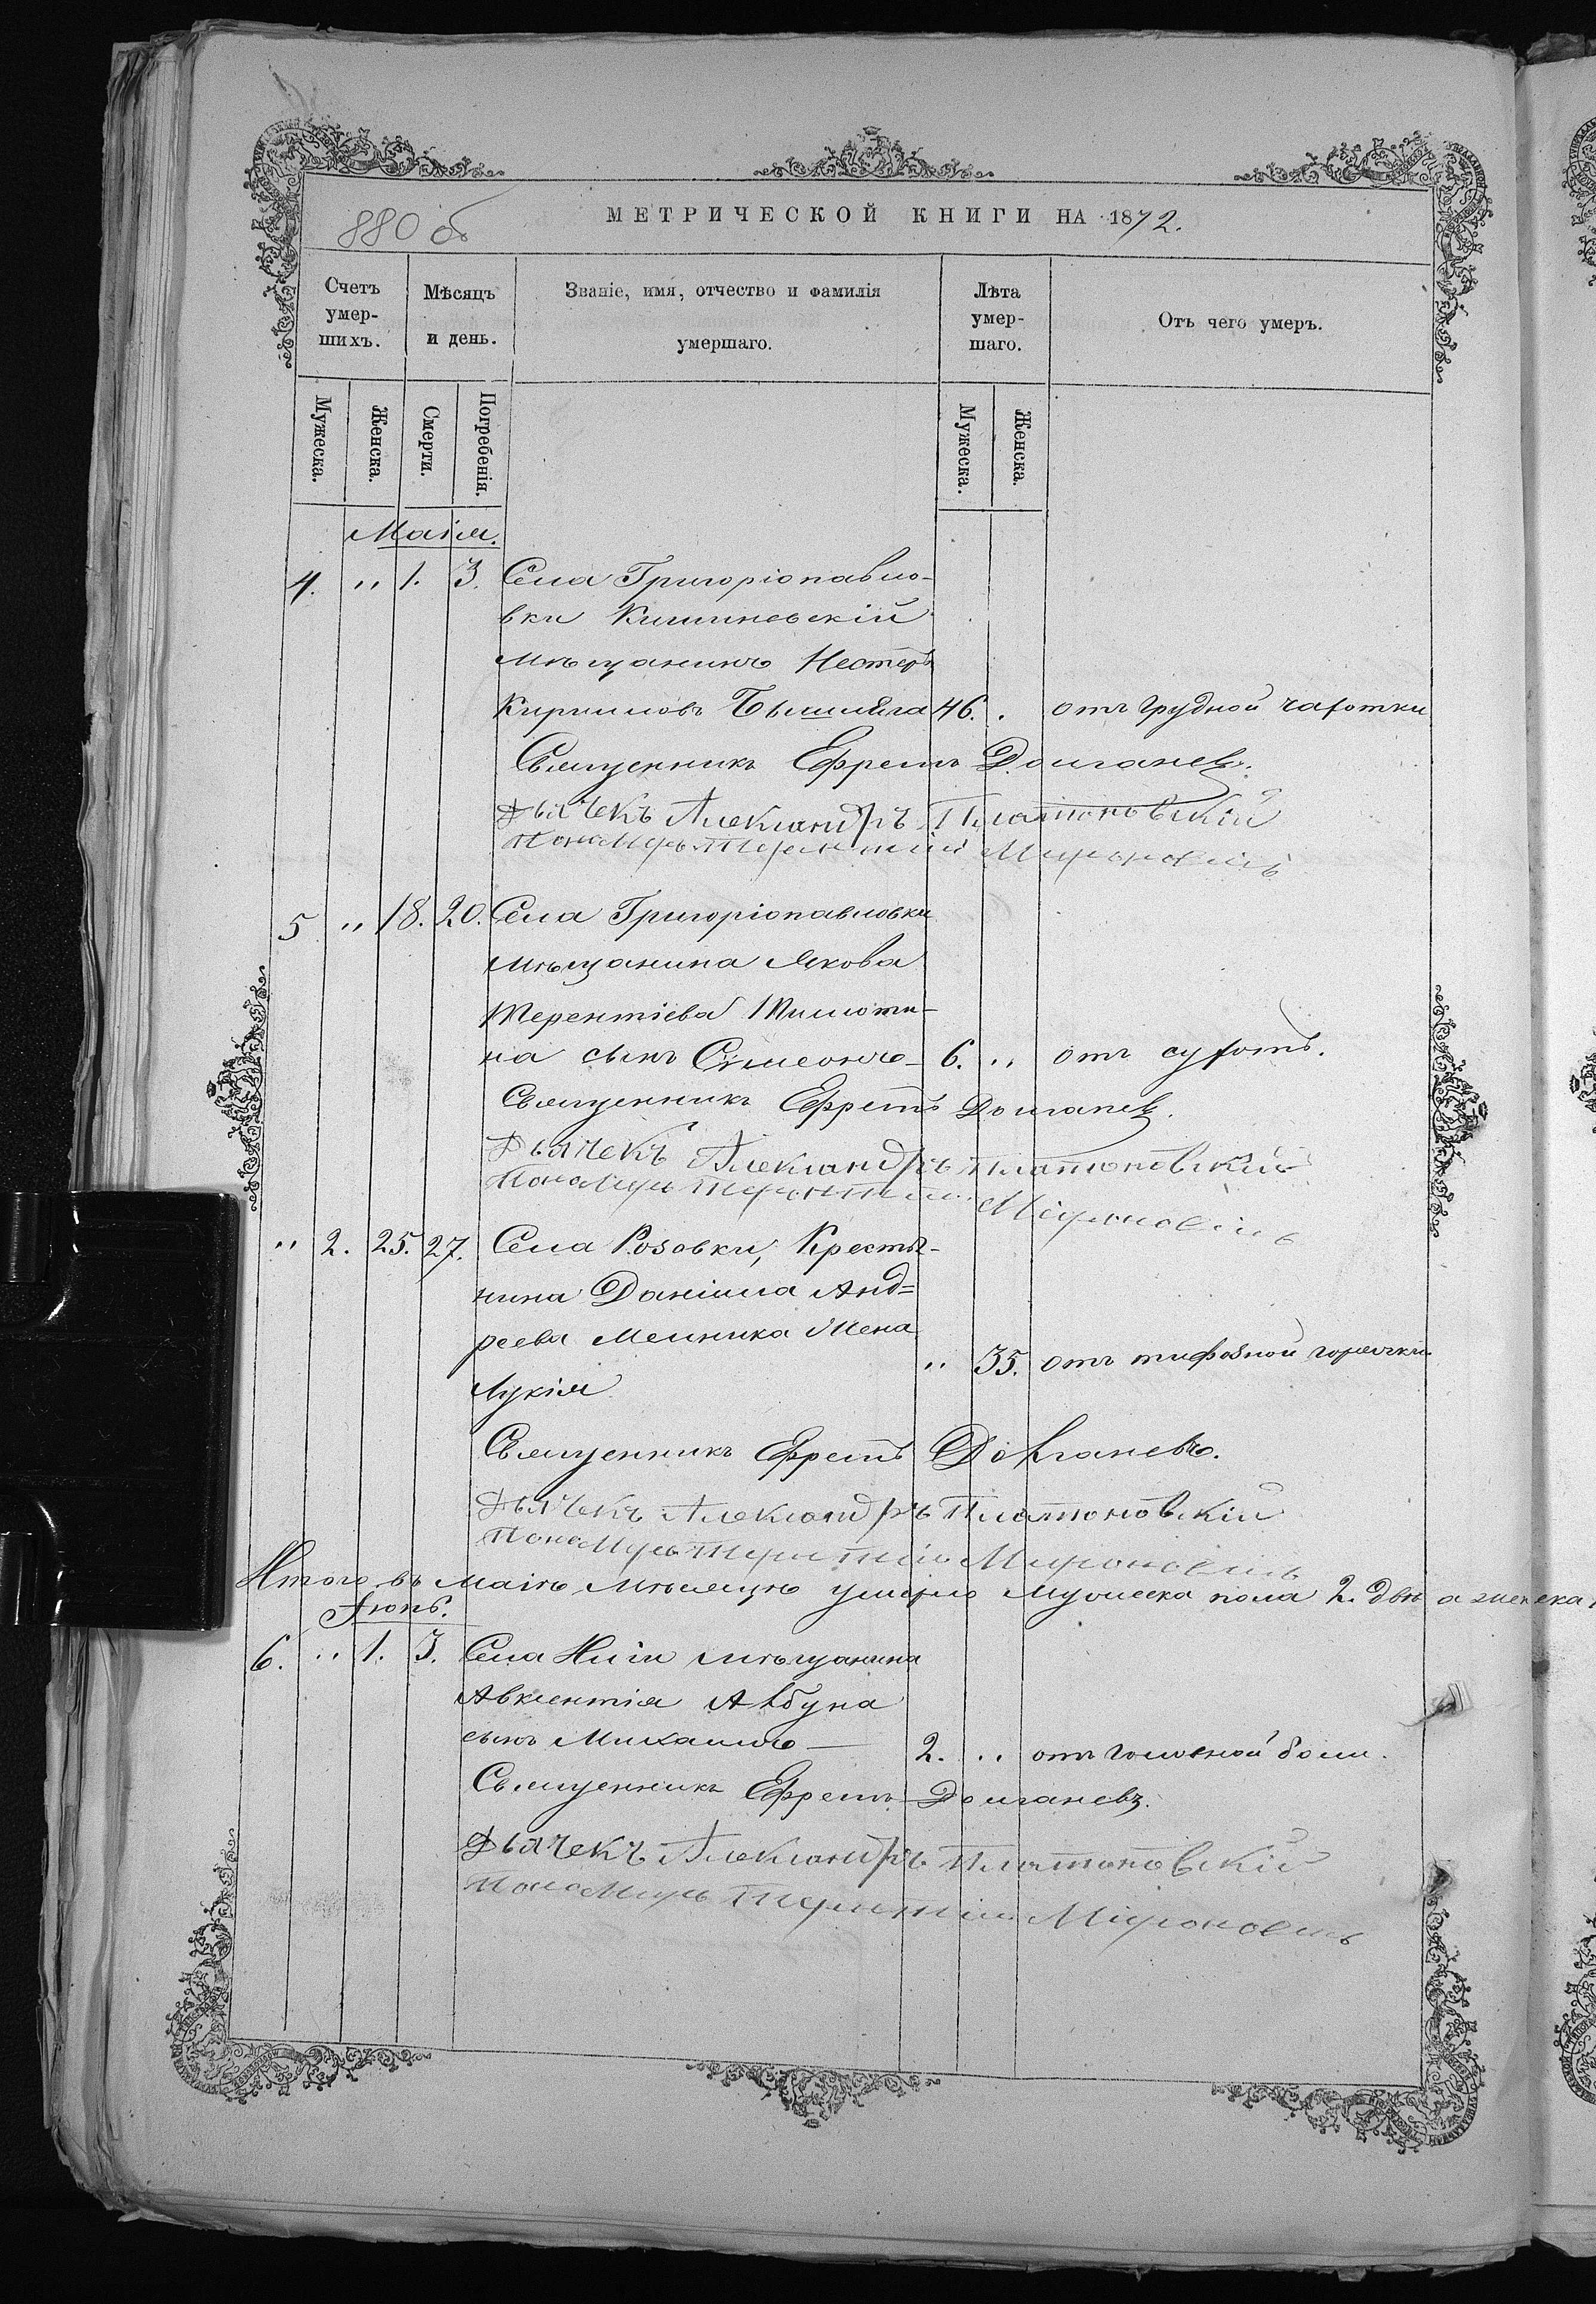 880 об
МЕТРИЧЕСКОЙ КНИГИ НА 1872.
Счетъ умер-шихъ.
Мѣсяцъ и день.
Званіе, имя, отчество и фамилія умершаго.
Лѣта умер-шаго.
Отъ чего умеръ.
Мужеска.
Женска.
Смерти.
Погребенія.
Мужеска.
Женска.
Маія.
4. " 1. 3. Села Григоріопавло-
вки Кишиневскій
мѣщанинъ Нестеръ
Кирилловъ 46. . отъ грудной чахотки
Священникъ Ефремъ Долганевъ.
Дьячекъ Александръ Платоновскій
Пономарь Терентій Мироновичъ
5 " 18. 20. Села Григоріопавловки
мѣщанина Якова
Терентіева
на сынъ Симеонъ 6. " отъ сухотъ.
Священникъ Ефремъ Долганевъ.
Дьячекъ Александръ Платоновскій
Пономарь Терентій Міроновичъ
" 2. 25. 27. Села Розовки, Крестья-
нина Даніила Анд=
реева Мелника жена
Лукія " 35. отъ тифозной горячки
Священникъ Ефремъ Долганевъ.
Дьячекъ Александръ Платоновскій
Пономарь Терентій Мироновичъ
Итого въ Маіѣ мѣсяцѣ умерло мужеска пола 2. двѣ а женска
Іюнь.
6. " 1. 3. Села мѣщанина
Авксентія Албула
сынъ Михаилъ 2. " отъ головной боли.
Священникъ Ефремъ Долганевъ.
Дьячекъ Александръ Платоновскій
Пономарь Терентій Міроновичъ